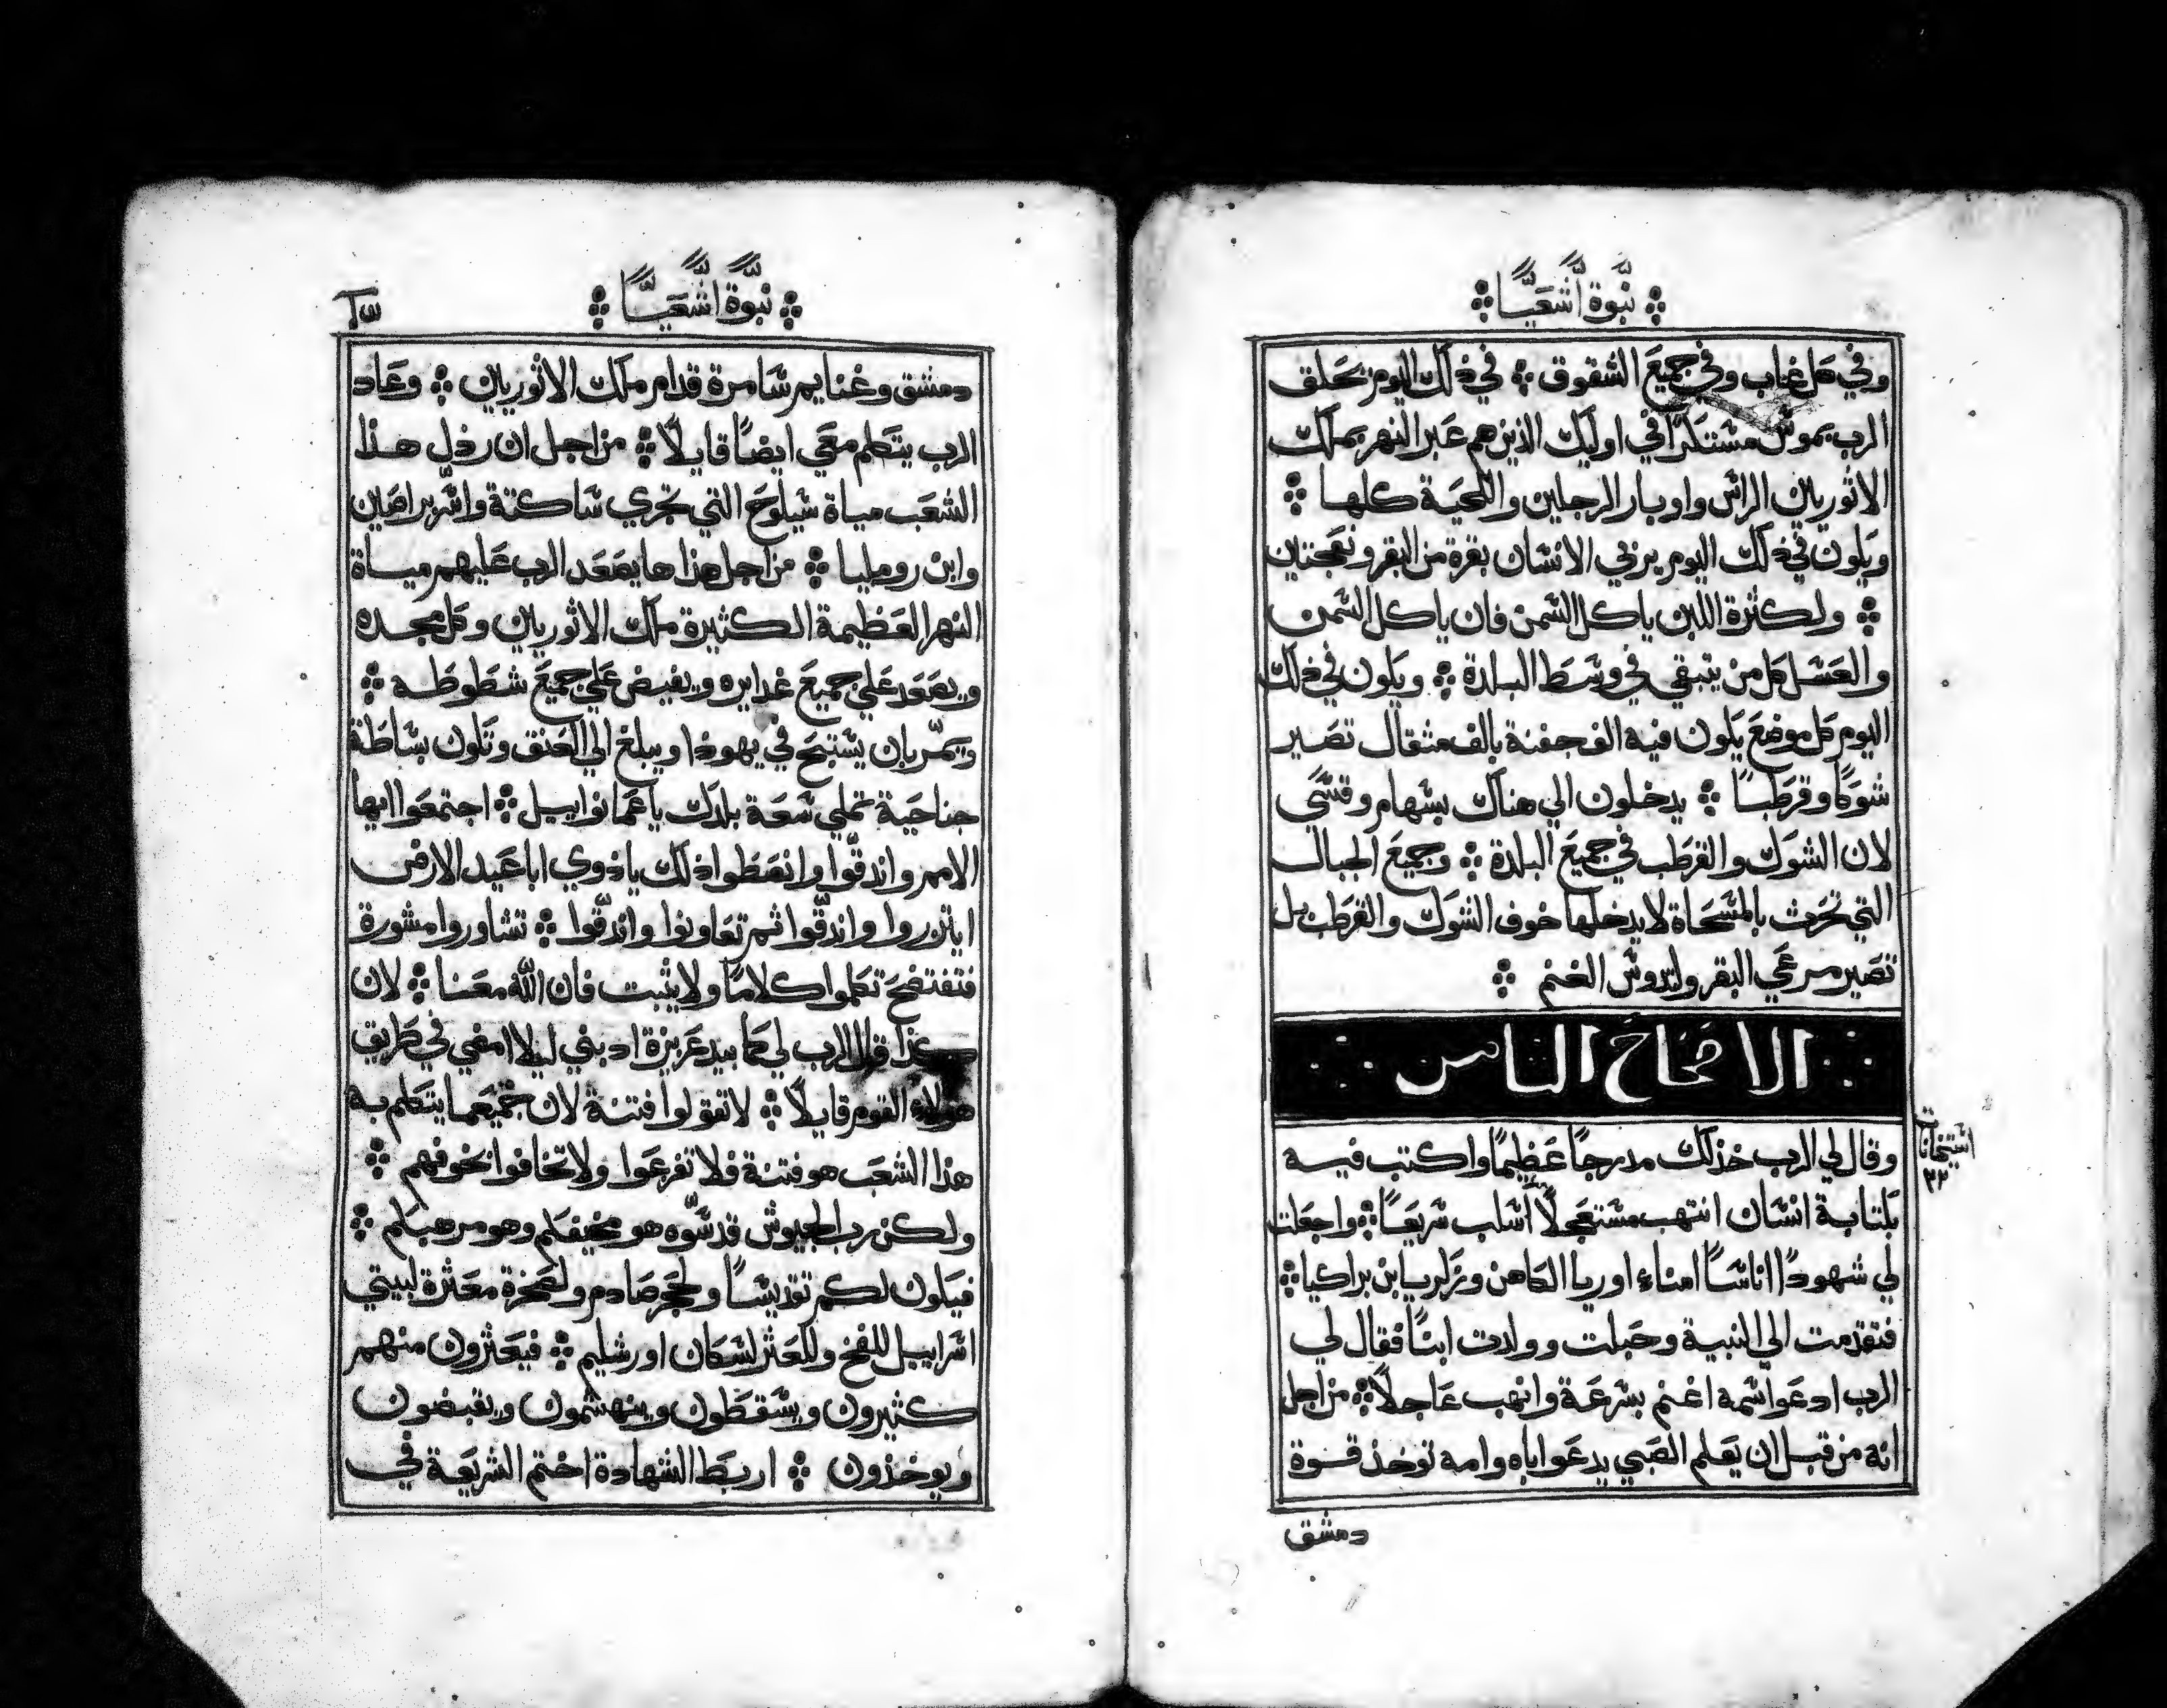 نبوة اشعيا
وفي كل غاب وفي جميع الشقوق ❖ في ذلك اليوم يحلق
الرب بموس مستنكرًا في اوليك الذين هم عبر النهر بملك
الاثوريين الراس واوبار الرجلين واللحية كلها ❖
ويكون في ذلك اليوم يربي الانسان بقرة من البقر ونعجتين
❖ ولكثرة اللبن ياكل السمن فان ياكل السمن
والعسل كل من يتبقي في وسط البلدة ❖ ويكون في ذلك
اليوم كل موضع يكون فيه الف جفنة بالف مثقال تصير
شوكًا وقرطبًا ❖ يدخلون الي هناك بسهام وقسي
لان الشوك والقرطب في جميع البلدة ❖ وجميع الجبال
التي تحرث بالمسحاة لا يدخلها خوف الشوك والقرطب بل
تصير مرعي البقر ولدوس الغنم ❖
الاصحاح الثامن
وقال لي الرب خذ لك مدرجًا عظيمًا واكتب فيه
بكتابة انسان انتهب مستعجلًا اسلب سريعًا ❖ واجعلت
لي شهودًا اناسًا امناء اوريا الكاهن وزكريا بن براكيا ❖
فتقدمت الي النبية وحبلت وولدت ابنًا فقال لي
الرب ادعوا سمه اغنم بسرعة وانهب عاجلًا ❖ من اجل
انه من قبل ان يعلم الصبي يدعوا اباه وامه توخذ قوة
دمشق
٣٢
نبوة اشعيا
دمشق وغنايم سامرة قدام ملك الاثوريين ❖ وعاد
الرب يتكلم معي ايضًا قايلًا ❖ من اجل ان رذل هذا
الشعب مياة شيلوح التي تجري ساكتة واسر براصين
وابن روميليا ❖ من اجل هذا ها يصعد الرب عليهم مياة
النهر العظيمة الكثيرة ملك الاثوريين وكل مجده
ويصعد علي جميع غدايره ويفيض علي جميع شطوطه ❖
ويمر بان يستبح في يهوذا ويبلغ الي العنق وتكون بساطة
جناحية تملي سعة بلدك يا عمانوايل ❖ اجتمعوا ايها
الامم واندقوا وانصطوا ذلك يا ذوي اباعيد الارض
ايتزروا واندقوا ثم تعاونوا واندقوا ❖ تشاوروا مشورة
فتفتضح تكلموا كلامًا ولا يثبت فان الله معنا ❖ لان
هكذا قال الرب لي كما بيد عزيزة ادبني ليلا امضي في طريق
هولاء القوم قايلًا ❖ لا تقولوا فتنة لان جميع ما يتكلم به
هذا الشعب هو فتنة فلا تفزعوا ولا تخافوا نخوفهم ❖
ولكن رب الجيوش قدسوه هو مخيفكم وهو مرهبكم ❖
فيكون لكم تقديسًا ولحجر صادم ولصخرة معثرة لبيتي
اسراييل للفخ وللعثر لسكان اورشليم ❖ فيعثرون منهم
كثيرون ويسقطون وينهشمون ويقبضون
ويوخذون ❖ اربط الشهادة اختم الشريعة في